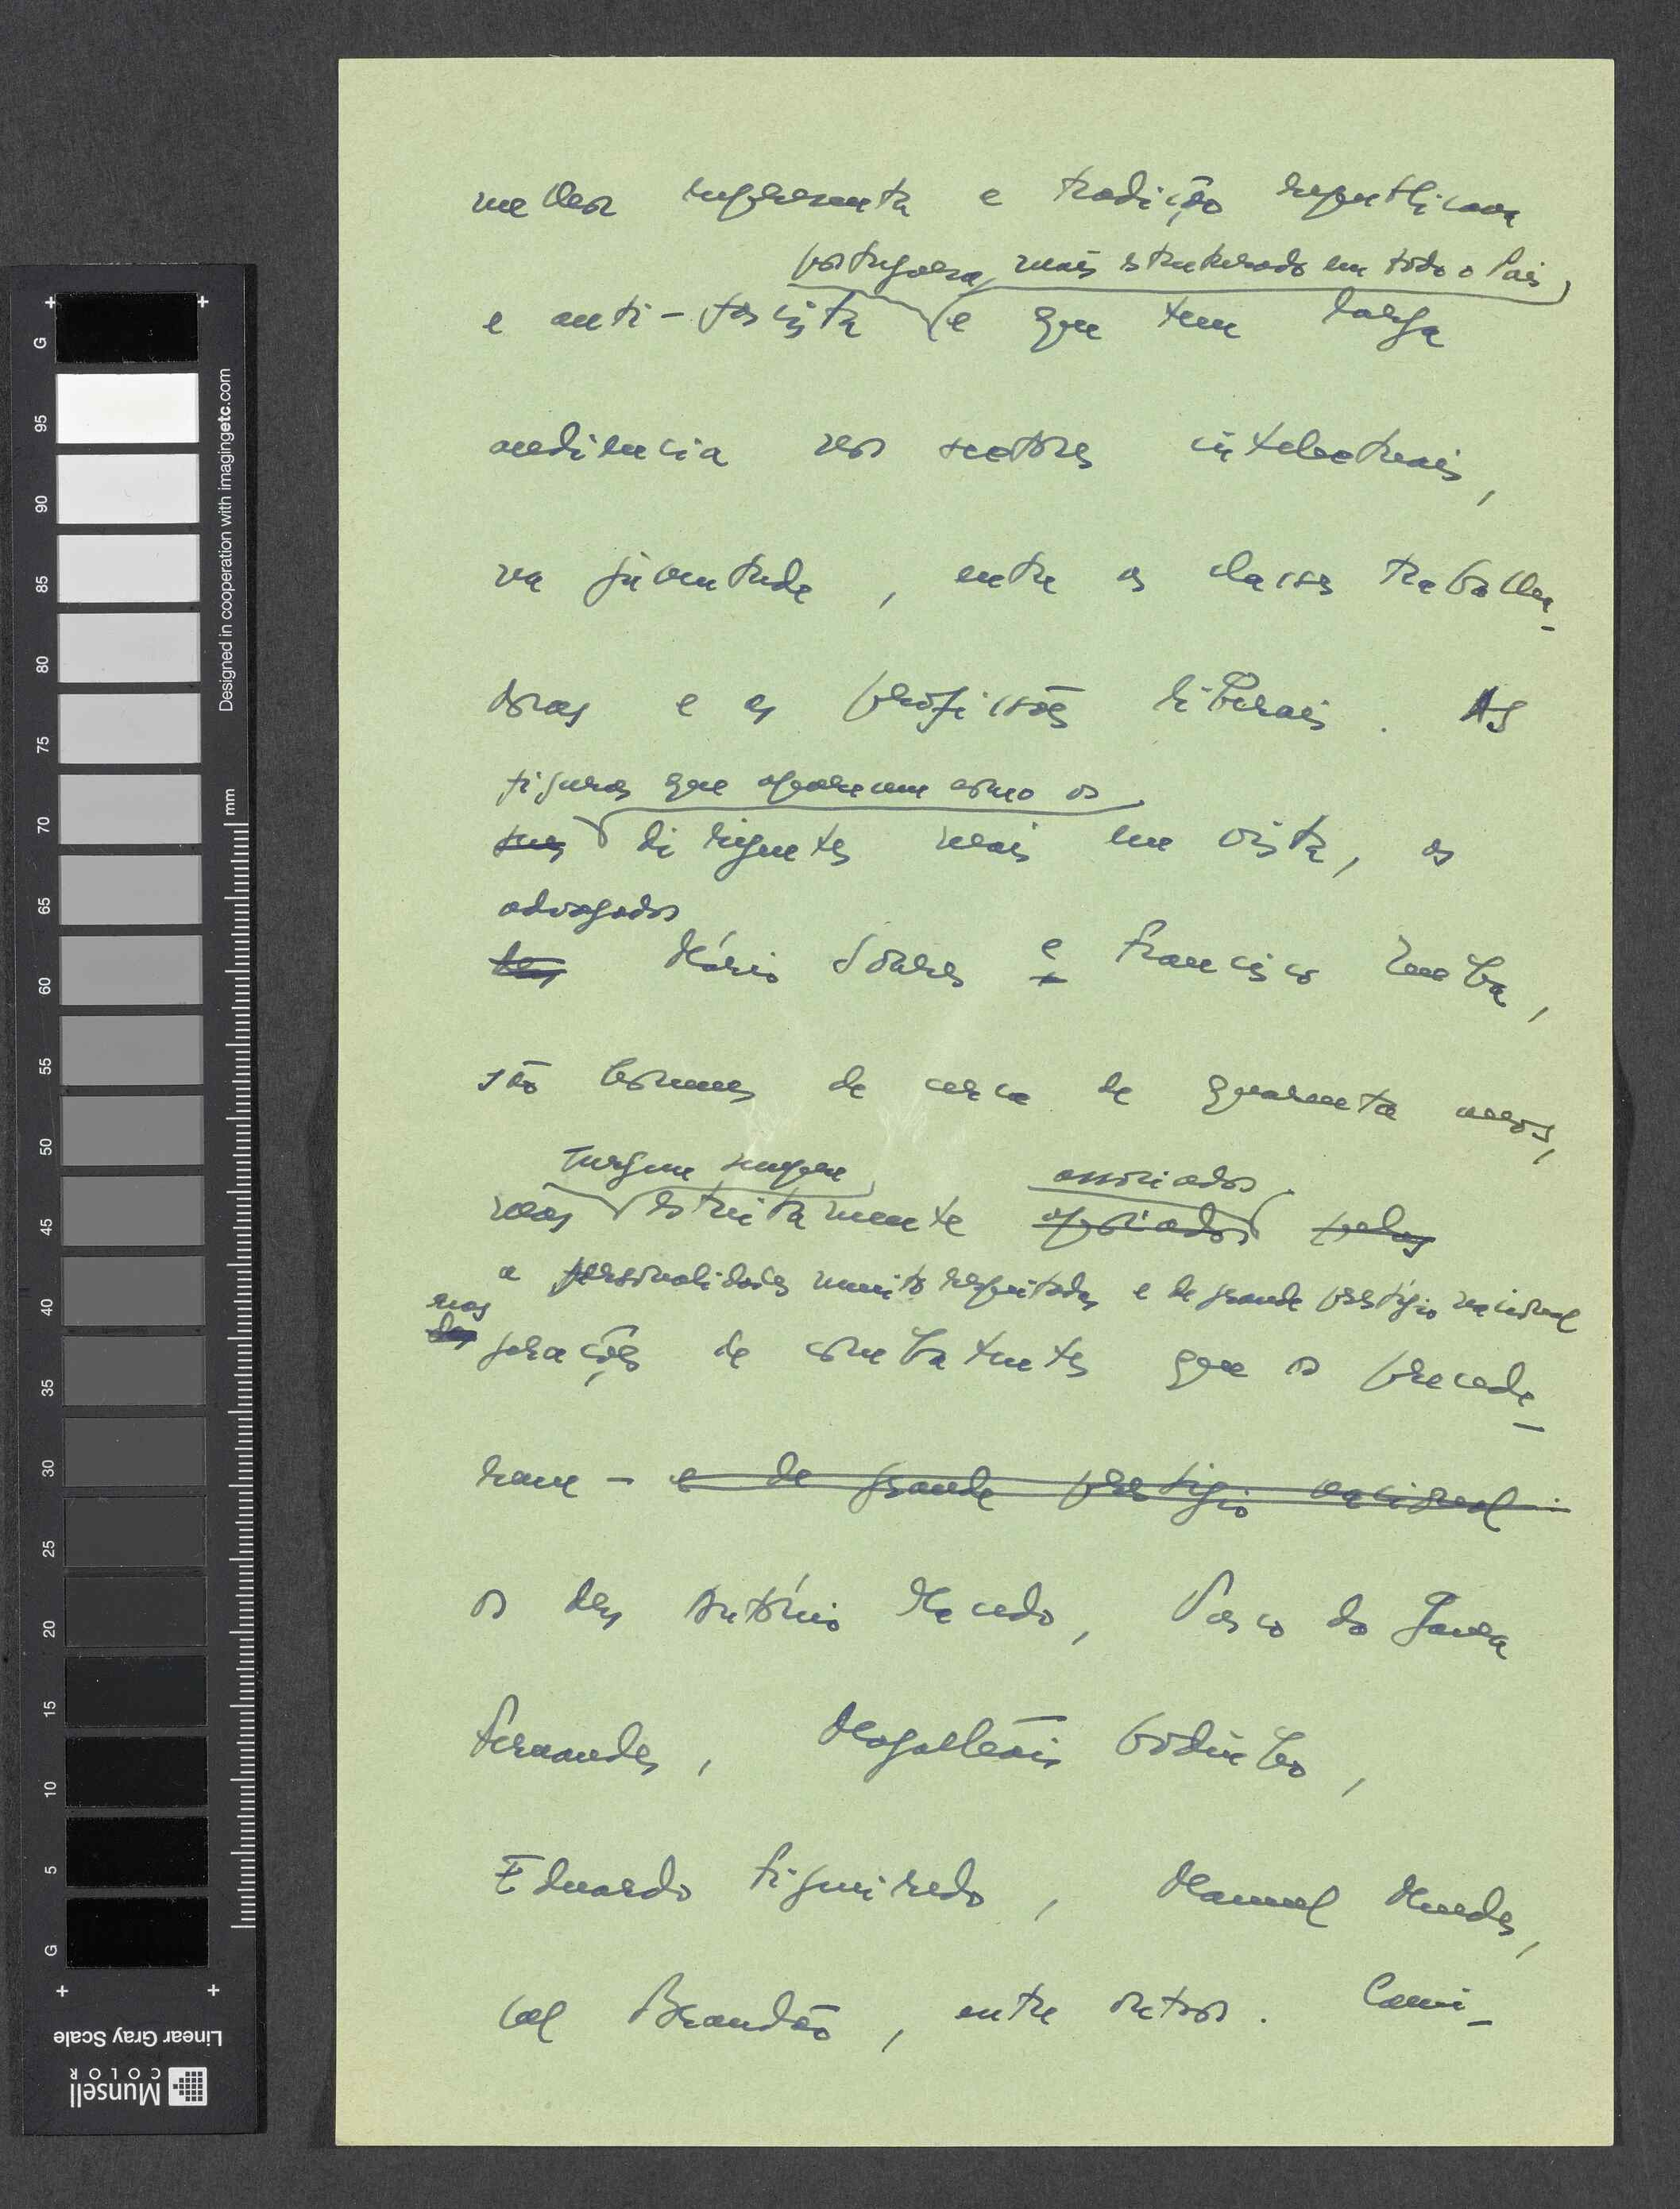 melhor representa a tradição republicana
portuguesa, mais estruturado em todo o País,
e anti-fascista e que tem larga
audiência nos sectores intelectuais,
na juventude, entre as classes trabalha-
doras e as profissões liberais. As
figuras que aparecem como os
suas dirigentes mais em vista, os
advogados
Mário Soares e Francisco Zenha,
são homens de cerca de quarenta anos,
surgem sempre associados
mas estritamente apoiados pelas
a personalidades muito respeitadas e de grande prestígio nacional
nas
das gerações de combatentes que os precede-
ram - e de grande prestígio nacional
os drs António Macedo, Vasco da Gama
Fernandes, Magalhães Godinho,
Eduardo Figueiredo, Manuel Mendes,
Cal Brandão, entre outros.
G 95 90 85 80 75 70 65 60 55 50 45 40 35 30 25 20 15 10 5 G
mm
Designed in cooperation with imagingetc.com
Linear Gray Scale
Munsell
COLOR